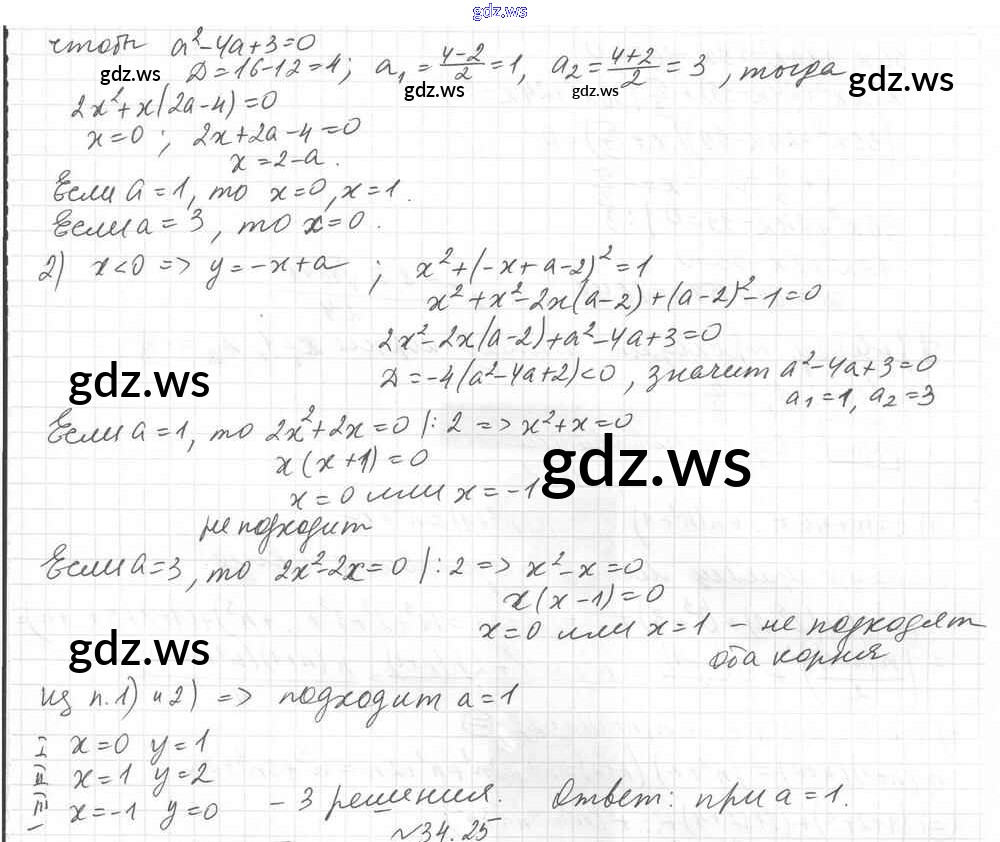 gdz.ws
чтобы a²-4a+3=0
Д=16-12=4; a₁=(4-2)/2=1, a₂=(4+2)/2=3, тогда
gdz.ws gdz.ws gdz.ws gdz.ws
2x²+x(2a-4)=0
x=0; 2x+2a-4=0
x=2-a.
Если a=1, то x=0, x=1.
Если a=3, то x=0.
2) x<0 => y=-x+a; x²+(-x+a-2)²=1
x²+x²-2x(a-2)+(a-2)²-1=0
2x²-2x(a-2)+a²-4a+3=0
gdz.ws
Д=-4(a²-4a+2)<0, значит a²-4a+3=0
a₁=1, a₂=3
Если a=1, то 2x²+2x=0 |:2 => x²+x=0
x(x+1)=0
gdz.ws
x=0 или x=-1
не подходит
Если a=3, то 2x²-2x=0 |:2 => x²-x=0
x(x-1)=0
x=0 или x=1 - не подходят
gdz.ws
оба корня
из п.1) и 2) => подходит a=1
I x=0 y=1
II x=1 y=2
III x=-1 y=0 - 3 решения. Ответ: при a=1.
№34.25